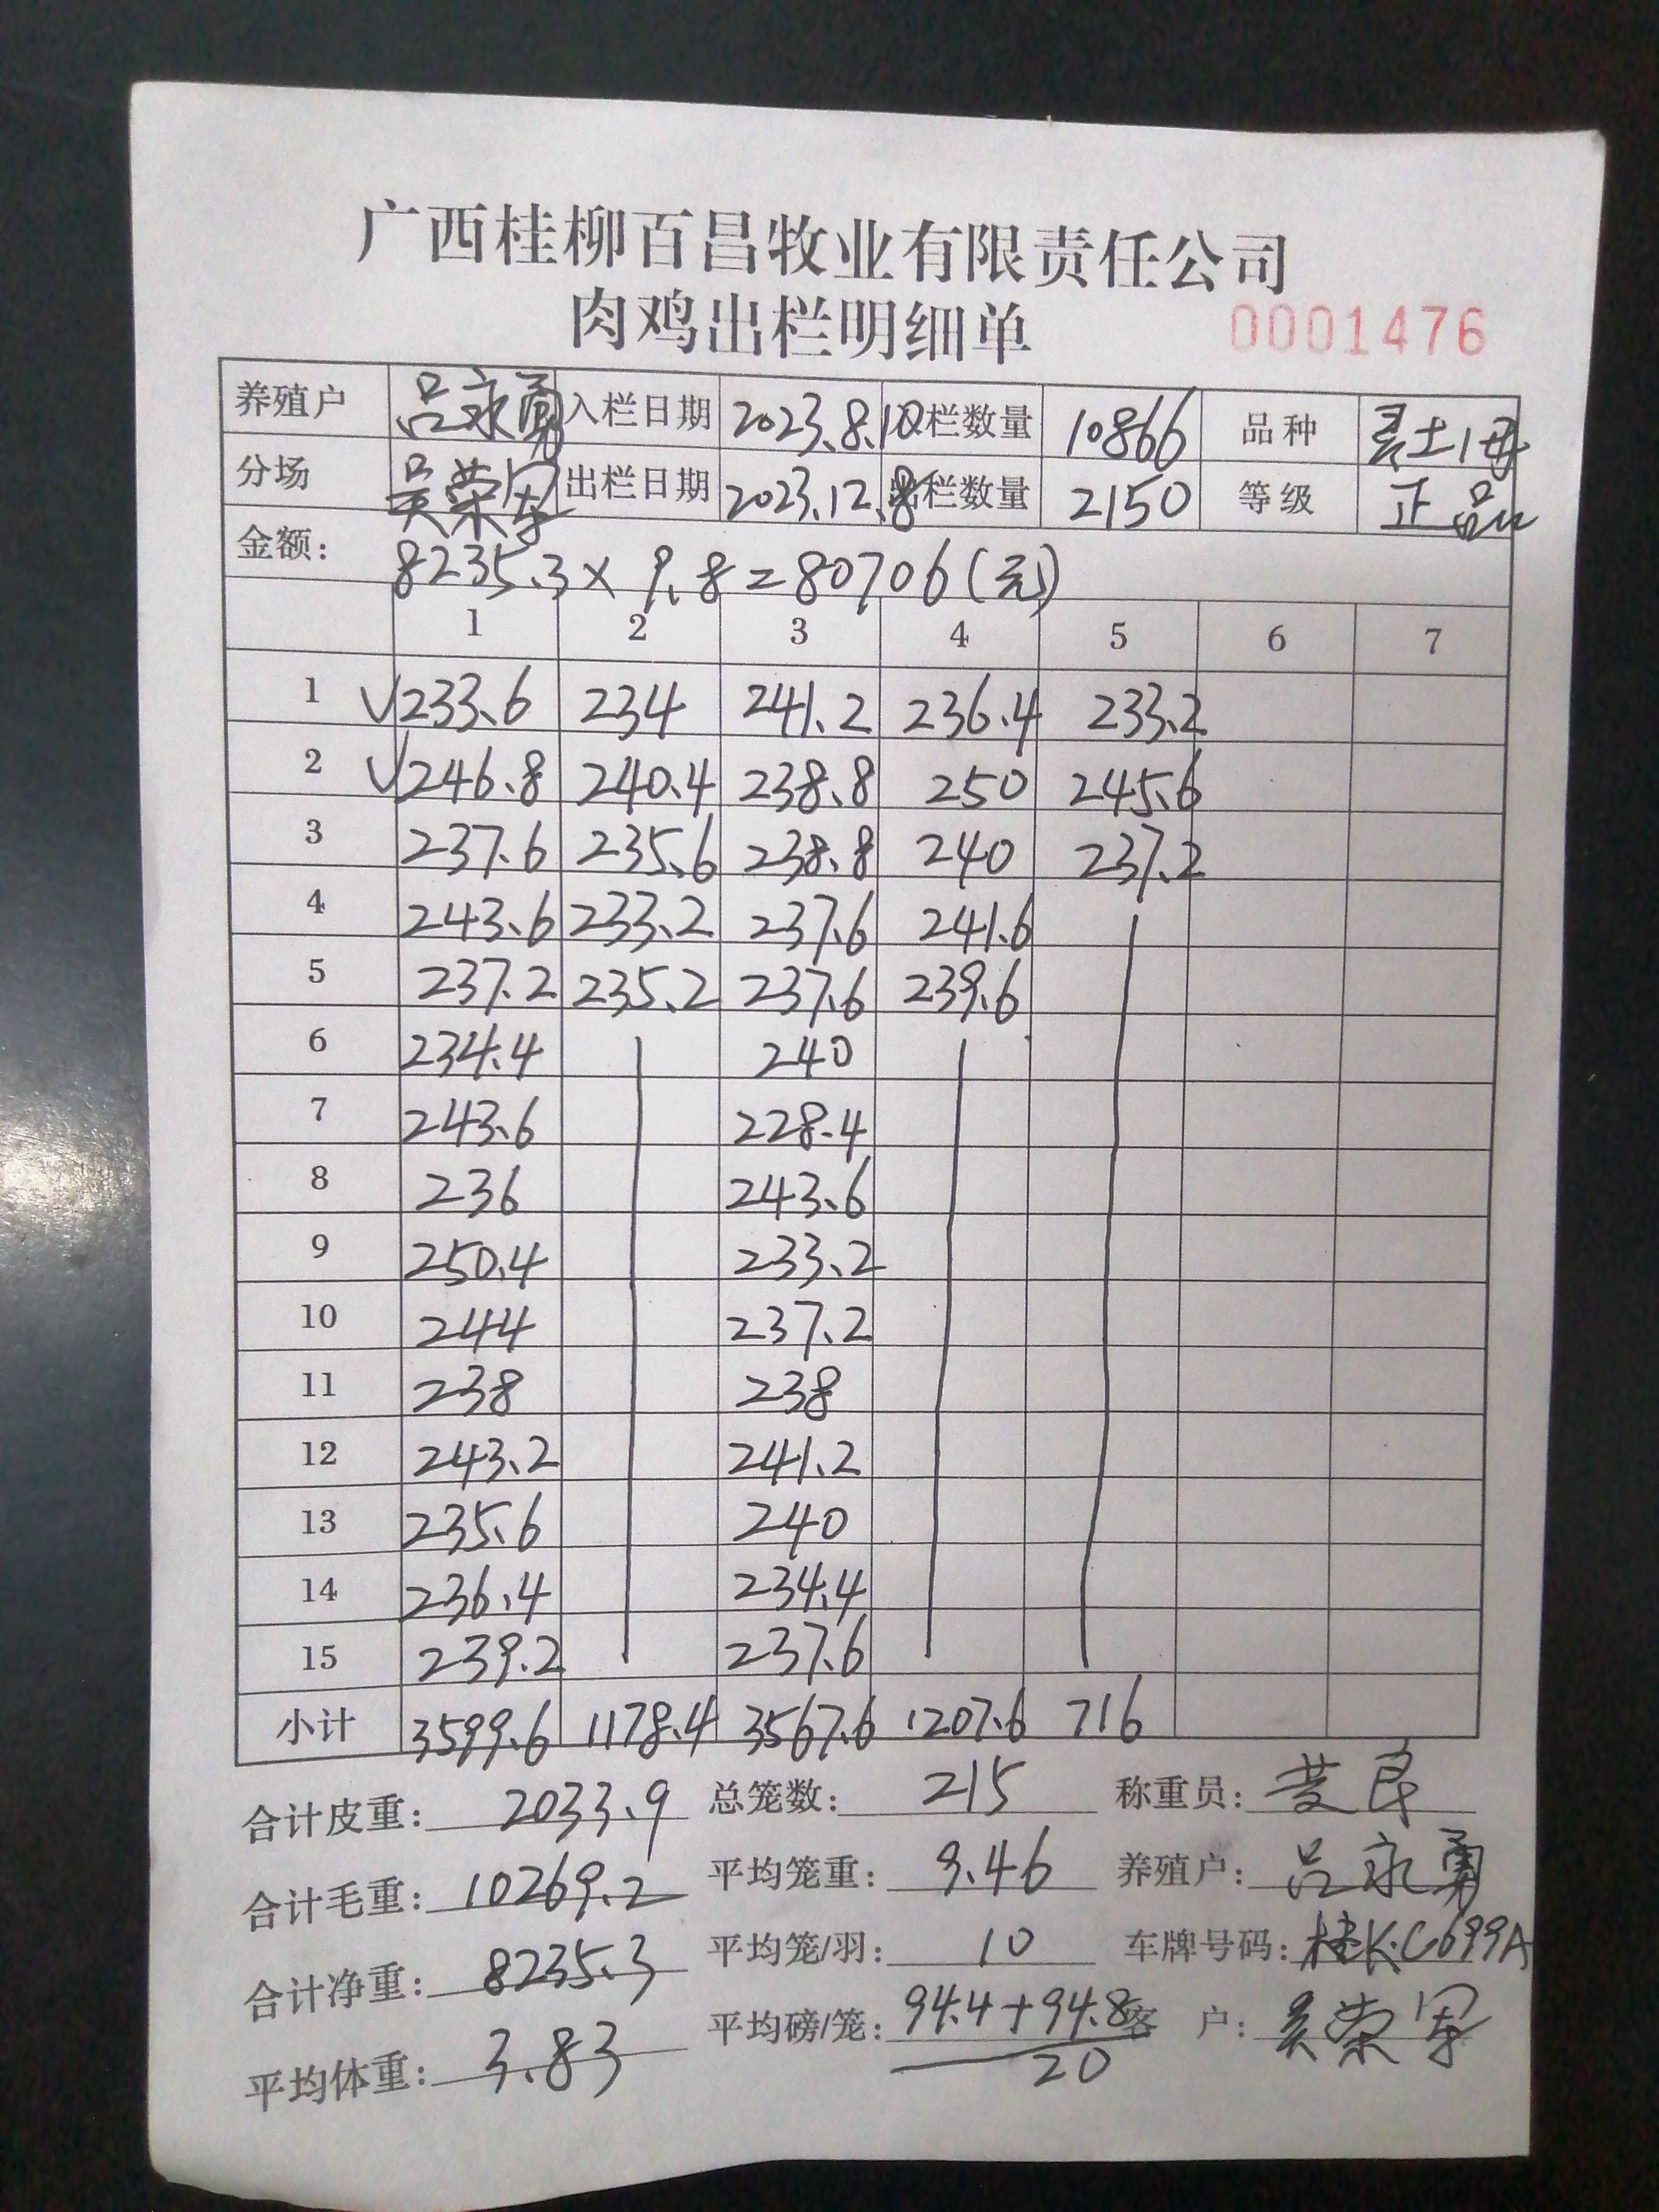 广西桂柳百昌牧业有限责任公司
肉鸡出栏明细单 0001476
养殖户 吕永勇 入栏日期 2023.8.10 入栏数量 10866 品种 土1母
分场 吴荣军 出栏日期 2023.12.8 出栏数量 2150 等级 正品
金额: 8235.3×9.8=80706(元)
1 2 3 4 5 6 7
1 √233.6 234 241.2 236.4 233.2
2 √246.8 240.4 238.8 250 245.6
3 237.6 235.6 238.8 240 237.2
4 243.6 233.2 237.6 241.6
5 237.2 235.2 237.6 239.6
6 234.4 240
7 243.6 228.4
8 236 243.6
9 250.4 233.2
10 244 237.2
11 238 238
12 243.2 241.2
13 235.6 240
14 236.4 234.4
15 239.2 237.6
小计 3599.6 1178.4 3567.6 1207.6 716
合计皮重: 2033.9 总笼数: 215 称重员: 良
合计毛重: 10269.2 平均笼重: 9.46 养殖户: 吕永勇
合计净重: 8235.3 平均笼/羽: 10 车牌号码: 桂K.C699A
平均体重: 3.83 平均磅/笼: 94.4+94.8 客户: 吴荣军
20